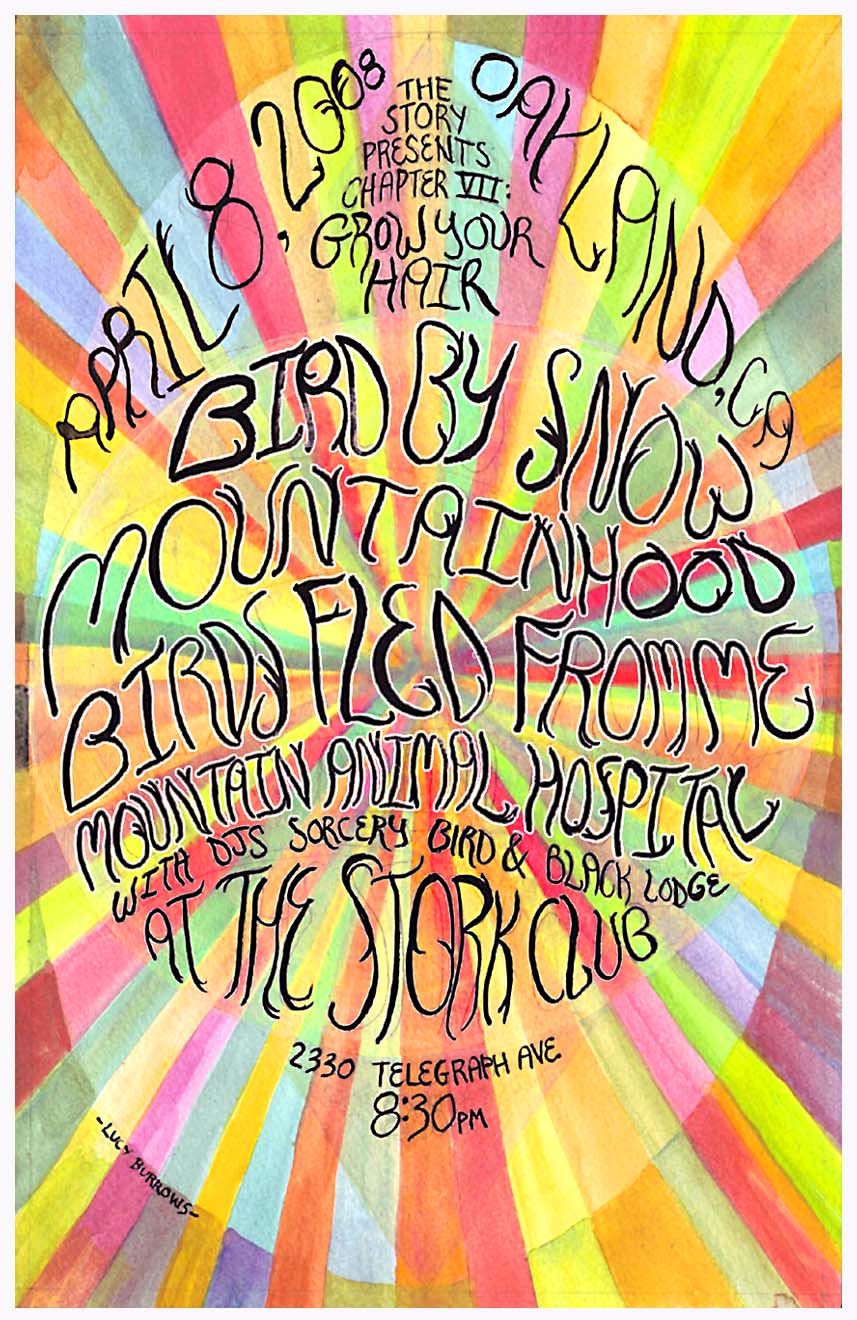 APRIL 8, 2008
THE
STORY
PRESENTS
CHAPTER VII:
GROW YOUR
HAIR
OAKLAND, CA
BIRD BY SNOW
MOUNTAINHOOD
BIRDS FLED FROM ME
MOUNTAIN ANIMAL HOSPITAL
WITH DJS SORCERY BIRD & BLACK LODGE
AT THE STORK CLUB
2330 TELEGRAPH AVE.
8:30PM
-LUCY BURROWS-